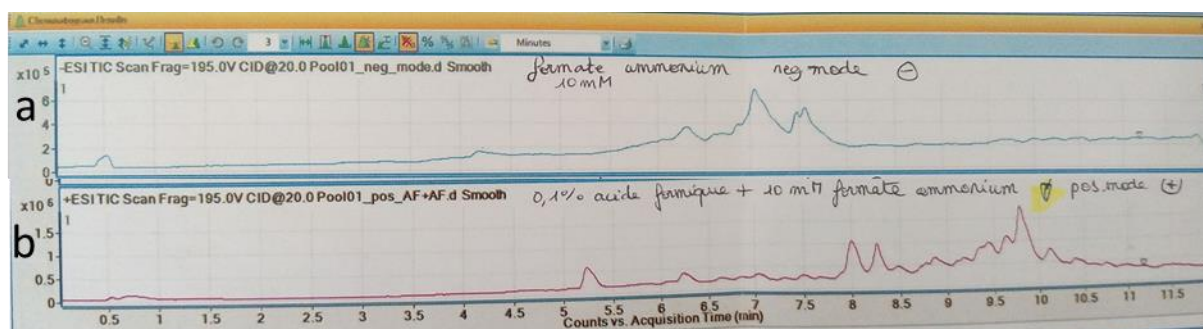 Chromatogram Results
3 % Minutes
x10 5 -ESI TIC Scan Frag=195.0V CID@20.0 Pool01_neg_mode.d Smooth formate ammonium neg mode ⊖
1 10 mM
a
6
4
2
0
x10 6 +ESI TIC Scan Frag=195.0V CID@20.0 Pool01_pos_AF+AF.d Smooth 0,1% acide formique + 10 mM formate ammonium pos.mode ⊕
1
b
1.5
1
0.5
0
0.5 1 1.5 2 2.5 3 3.5 4 4.5 5 5.5 6 6.5 7 7.5 8 8.5 9 9.5 10 10.5 11 11.5
Counts vs. Acquisition Time (min)